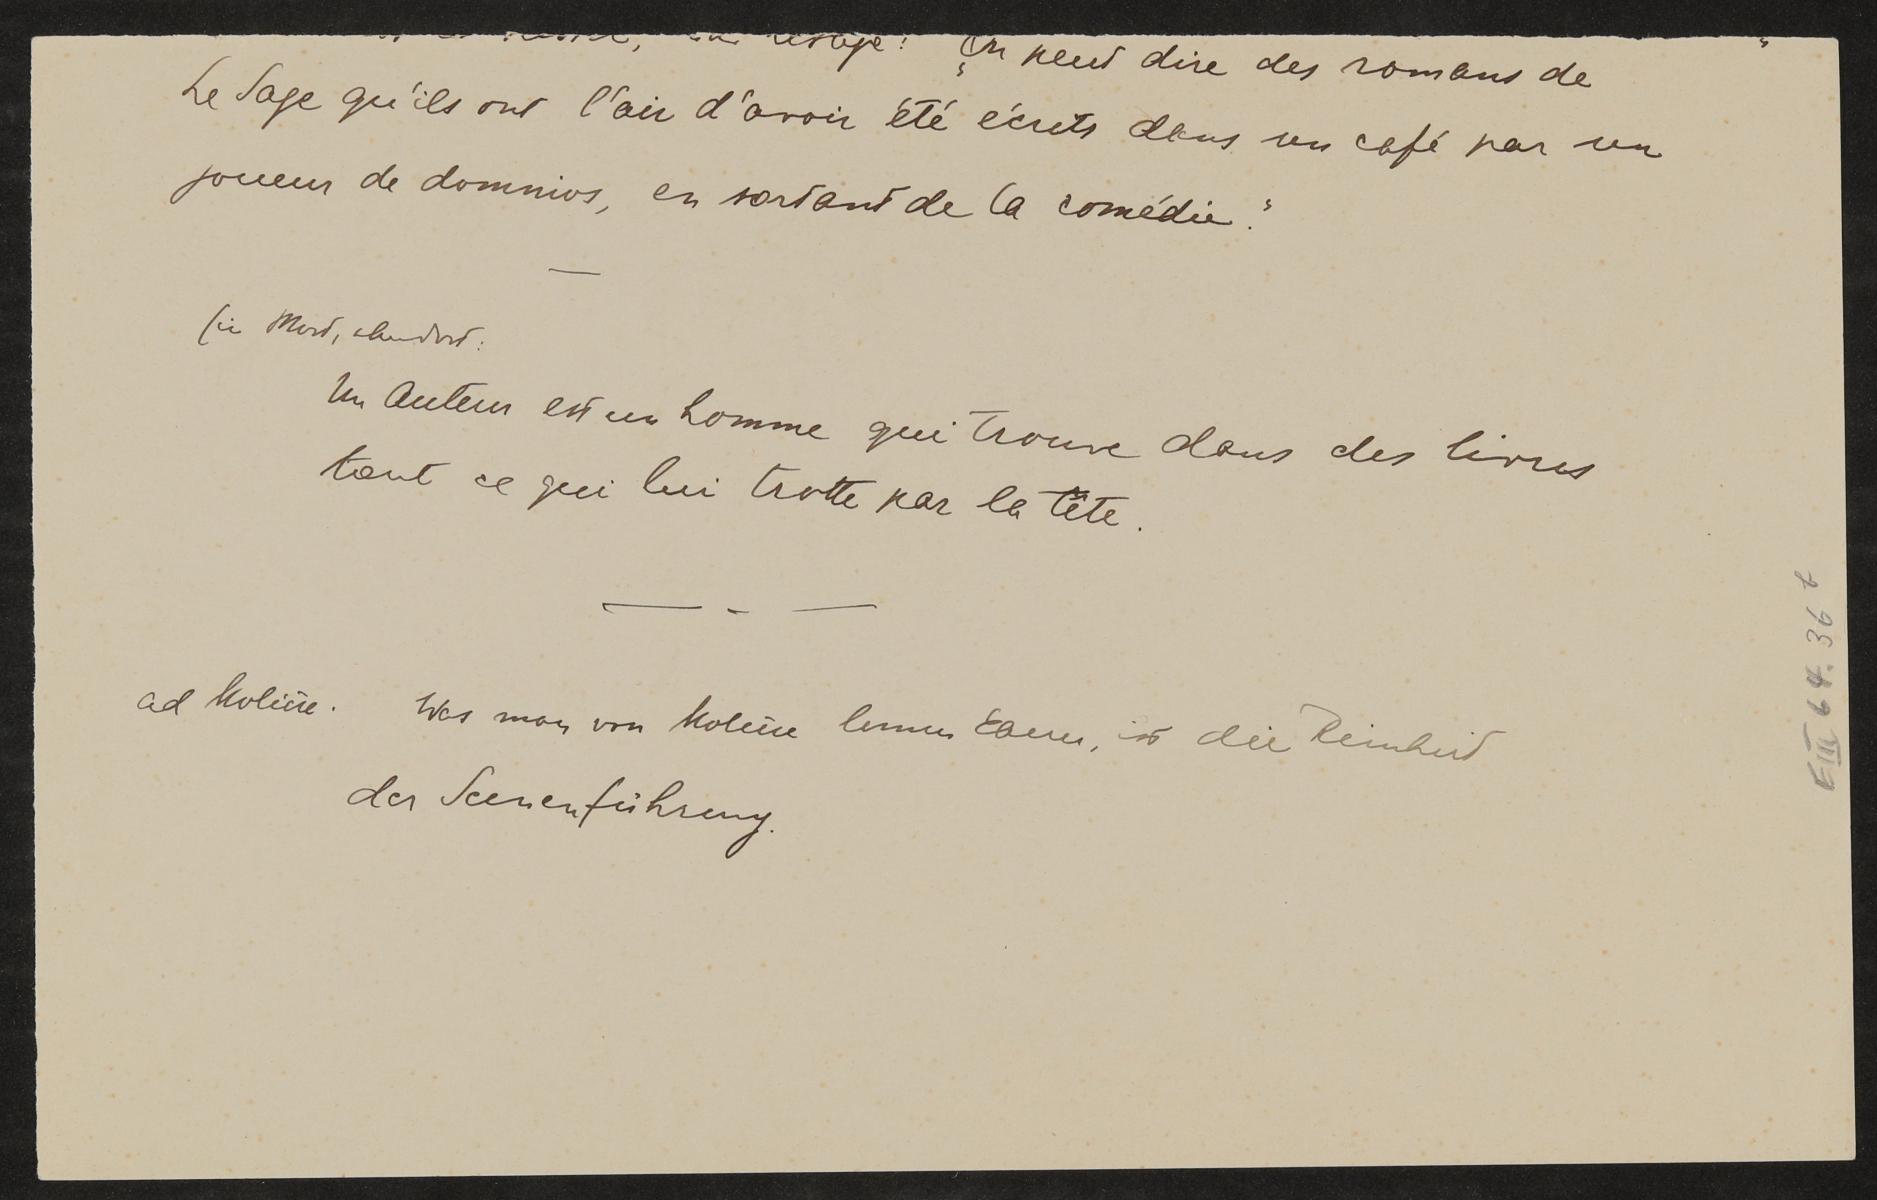 Lesage: „On peut dire des romans de
Le Sage qu'ils ont l'air d'avoir été écrits dans un café par un
joueur de dominos, en sortant de la comédie."
—
Mort, ebendort:
Un Auteur est un homme qui trouve dans des livres
tout ce qui lui trotte par la tête.
— - —
ad Molière. Was man von Molière lernen kann, ist die Reinheit
der Scenenführung.
E III 64.36 b